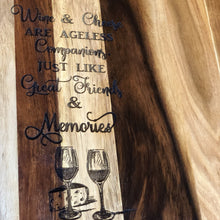 Wine & Cheese
ARE AGELESS
Companions,
JUST LIKE
Great Friends
&
Memories